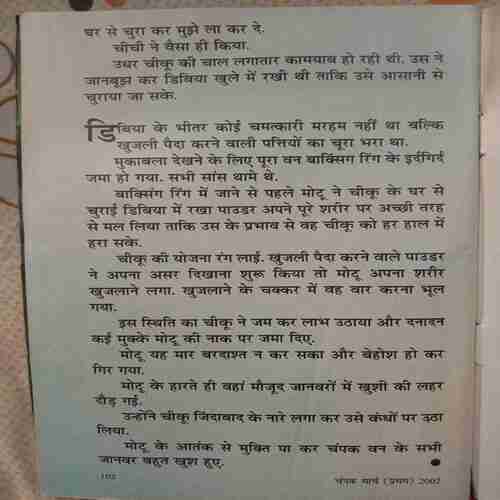 घर से चुरा कर मुझे ला कर दे.
चीची ने वैसा ही किया.
उधर चीकू की चाल लगातार कामयाब हो रही थी. उस ने
जानबूझ कर डिबिया खुले में रखी थी ताकि उसे आसानी से
चुराया जा सके.
डिबिया के भीतर कोई चमत्कारी मरहम नहीं था बल्कि
खुजली पैदा करने वाली पत्तियों का चूरा भरा था.
मुकाबला देखने के लिए पूरा वन बाक्सिंग रिंग के इर्दगिर्द
जमा हो गया. सभी सांस थामे थे.
बाक्सिंग रिंग में जाने से पहले मोटू ने चीकू के घर से
चुराई डिबिया में रखा पाउडर अपने पूरे शरीर पर अच्छी तरह
से मल लिया ताकि उस के प्रभाव से वह चीकू को हर हाल में
हरा सके.
चीकू की योजना रंग लाई. खुजली पैदा करने वाले पाउडर
ने अपना असर दिखाना शुरू किया तो मोटू अपना शरीर
खुजलाने लगा. खुजलाने के चक्कर में वह वार करना भूल
गया.
इस स्थिति का चीकू ने जम कर लाभ उठाया और दनादन
कई मुक्के मोटू की नाक पर जमा दिए.
मोटू यह मार बरदाश्त न कर सका और बेहोश हो कर
गिर गया.
मोटू के हारते ही वहां मौजूद जानवरों में खुशी की लहर
दौड़ गई.
उन्होंने चीकू जिंदाबाद के नारे लगा कर उसे कंधों पर उठा
लिया.
मोटू के आतंक से मुक्ति पा कर चंपक वन के सभी
जानवर बहुत खुश हुए.
102
चंपक मार्च (प्रथम) 2002